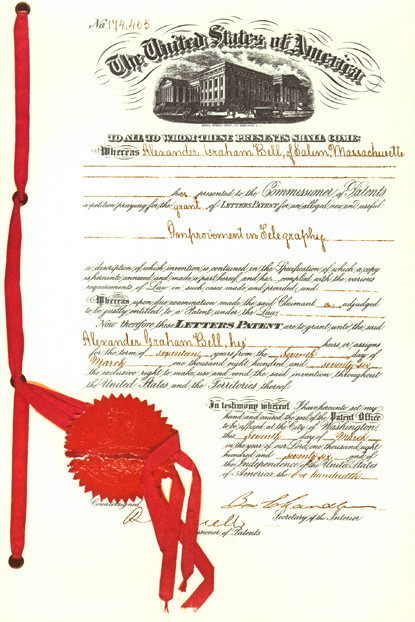 No. 174,465
The United States of America
TO ALL TO WHOM THESE PRESENTS SHALL COME:
Whereas Alexander Graham Bell, of Salem, Massachusetts
has presented to the Commissioner of Patents
a petition praying for the grant of LETTERS PATENT for an alleged new and useful
Improvement in Telegraphy
a description of which invention is contained in the Specification of which a copy
is hereunto annexed and made a part hereof, and has complied with the various
requirements of Law in such cases made and provided, and
Whereas upon due examination made the said Claimant is adjudged
to be justly entitled to a Patent under the Law.
Now therefore these LETTERS PATENT are to grant unto the said
Alexander Graham Bell, his heirs or assigns
for the term of seventeen years from the seventh day of
March one thousand eight hundred and seventy-six
the exclusive right to make, use and vend the said invention throughout
the United States and the Territories thereof.
In testimony whereof I have hereunto set my
hand and caused the seal of the Patent Office
to be affixed at the City of Washington
this seventh day of March
in the year of our Lord, one thousand eight
hundred and seventy-six and of
the Independence of the United States
of America the one hundredth.
Countersigned
Secretary of the Interior
of Patents